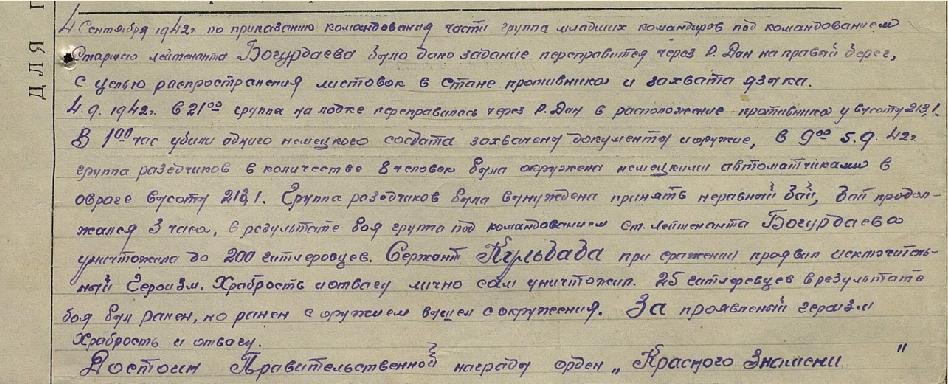 4 Сентября 1942г. по приказанию командования части группа младших командиров под командованием
Старшего лейтенанта Богурдаева было дано задание переправится через р. Дон на правый берег,
с целью распространения листовок в стане противника и захвата языка.
4.9.1942г. в 21⁰⁰ группа на лодке переправилась через р. Дон в расположение противника у высоты 213,1.
В 1⁰⁰ час убили одного немецкого солдата захвачено документы и оружие, в 9⁰⁰ 5.9.42г
группа разведчиков в количестве 8 человек была окружена немецкими автоматчиками в
овраге высоты 213,1. Группа разведчиков была вынуждена принять неравный бой, бой продол-
жался 3 часа, в результате боя группа под командованием ст. лейтенанта Богурдаева
уничтожила до 200 гитлеровцев. Сержант Кульбада при сражении проявил исключитель-
ный Героизм. Храбрость и отвагу лично сам уничтожил 25 гитлеровцев в результате
боя был ранен, но ранен с оружием вышел с окружения. За проявленый героизм
Храбрость и отвагу.
Достоин Правительственной награды орден „Красного Знамени"
ДЛЯ